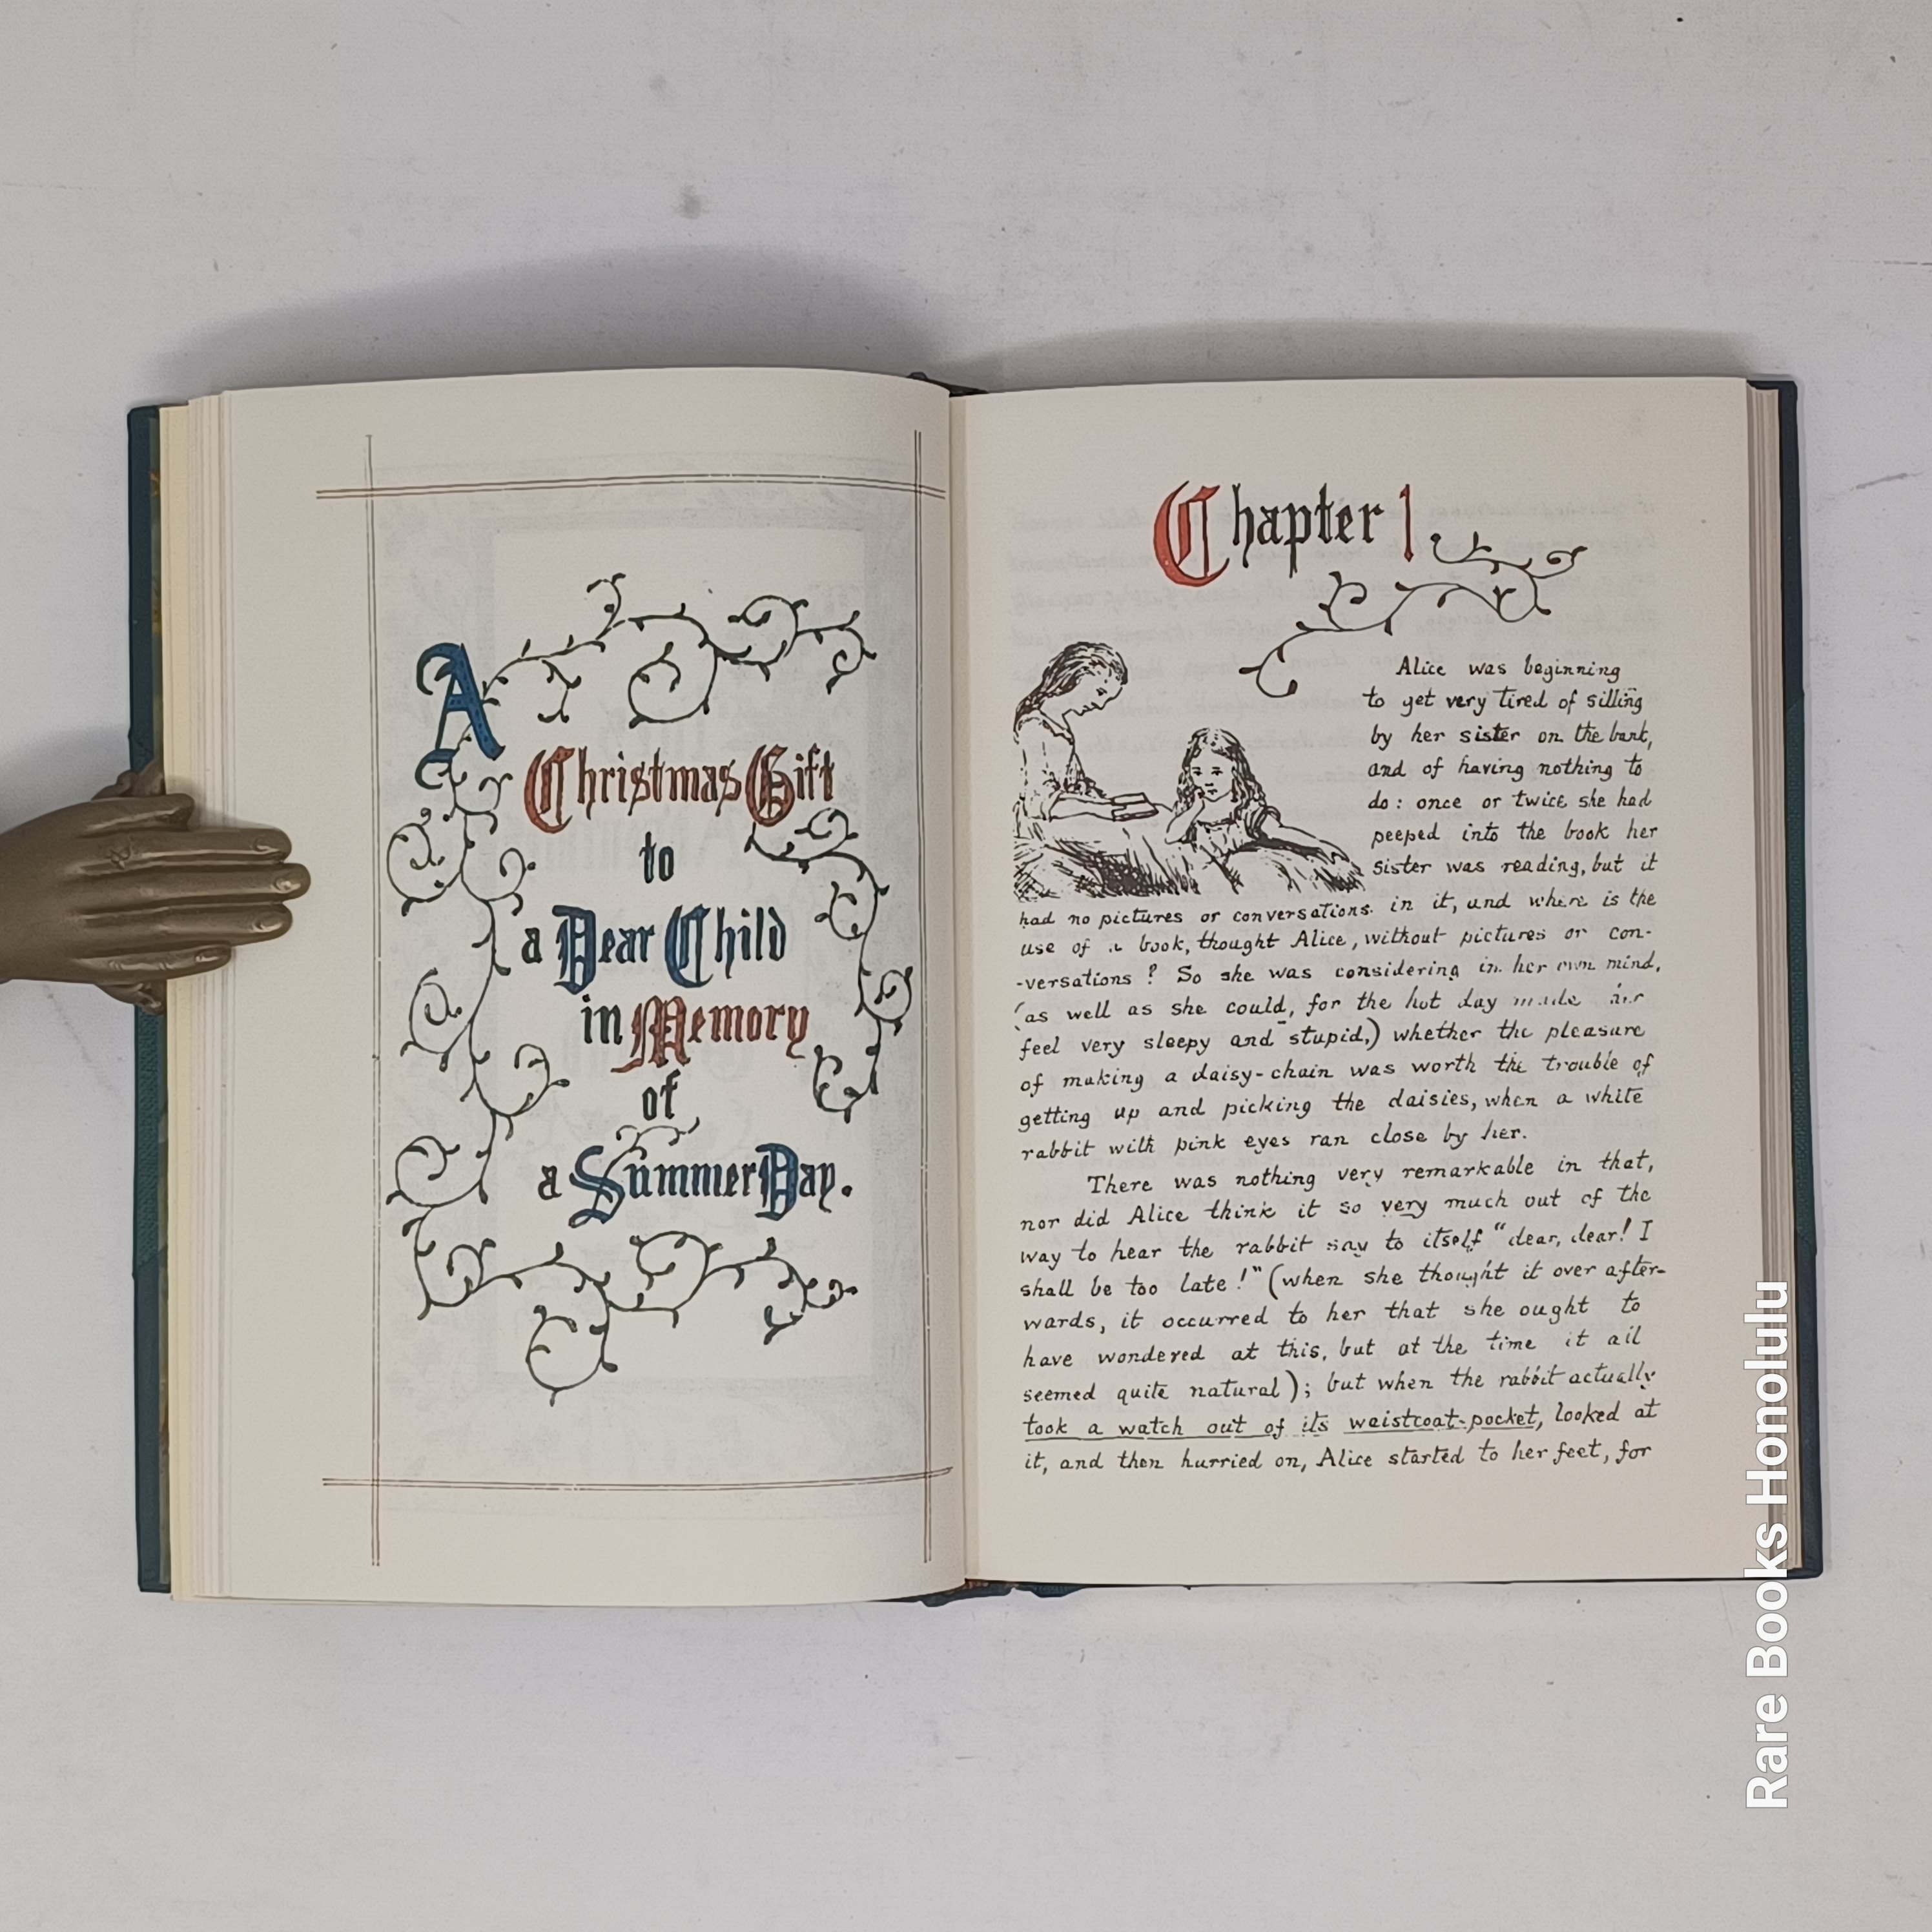 A
Christmas Gift
to
a Dear Child
in Memory
of
a Summer Day.
Chapter 1
Alice was beginning
to get very tired of sitting
by her sister on the bank,
and of having nothing to
do: once or twice she had
peeped into the book her
sister was reading, but it
had no pictures or conversations in it, and where is the
use of a book, thought Alice, without pictures or con-
-versations? So she was considering in her own mind,
(as well as she could, for the hot day made her
feel very sleepy and stupid,) whether the pleasure
of making a daisy-chain was worth the trouble of
getting up and picking the daisies, when a white
rabbit with pink eyes ran close by her.
There was nothing very remarkable in that,
nor did Alice think it so very much out of the
way to hear the rabbit say to itself "dear, dear! I
shall be too late!" (when she thought it over after-
wards, it occurred to her that she ought to
have wondered at this, but at the time it all
seemed quite natural); but when the rabbit actually
took a watch out of its waistcoat-pocket, looked at
it, and then hurried on, Alice started to her feet, for
Rare Books Honolulu